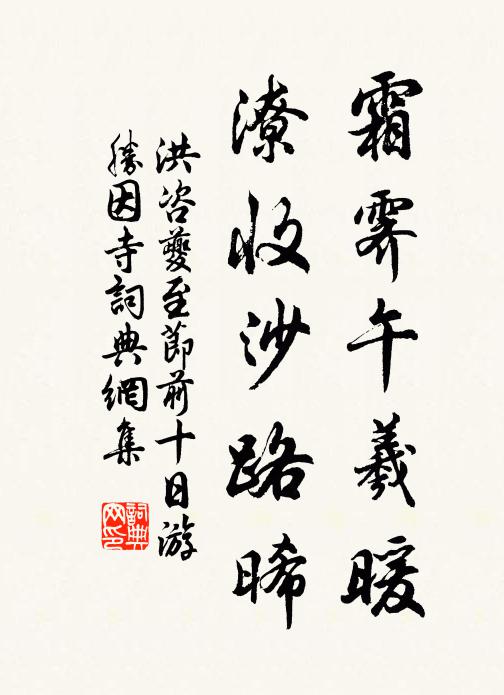 霜霽午羲暖
潦收沙路晞
洪咨夔至節前十日游
勝因寺詞典網集
詞典网印